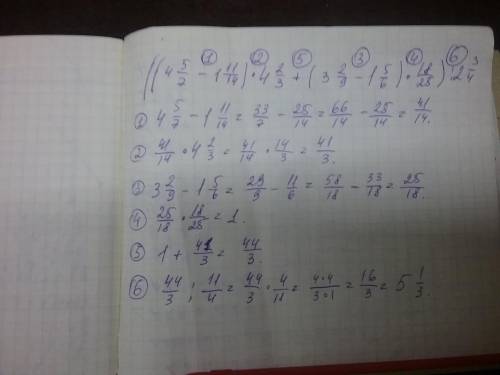 ((4 5/7 - 1 11/14) · 4 2/3 + (3 2/9 - 1 5/6) · 18/25) : 2 3/4
① ② ⑤ ③ ④ ⑥
① 4 5/7 - 1 11/14 = 33/7 - 25/14 = 66/14 - 25/14 = 41/14.
② 41/14 · 4 2/3 = 41/14 · 14/3 = 41/3.
③ 3 2/9 - 1 5/6 = 29/9 - 11/6 = 58/18 - 33/18 = 25/18.
④ 25/18 · 18/25 = 1.
⑤ 1 + 41/3 = 44/3.
⑥ 44/3 : 11/4 = 44/3 · 4/11 = 4·4/3·1 = 16/3 = 5 1/3.